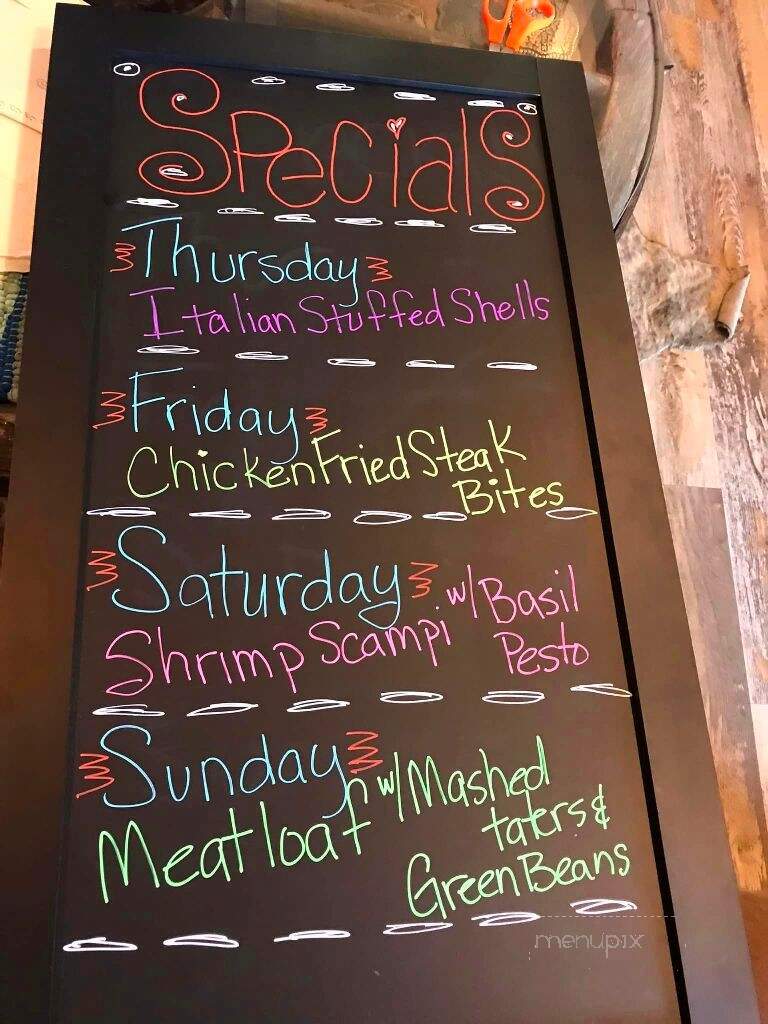 Specials
Thursday
Italian Stuffed Shells
Friday
Chicken Fried Steak
Bites
Saturday
Shrimp Scampi w/ Basil
Pesto
Sunday
Meatloaf w/ Mashed
taters &
Green Beans
menupix